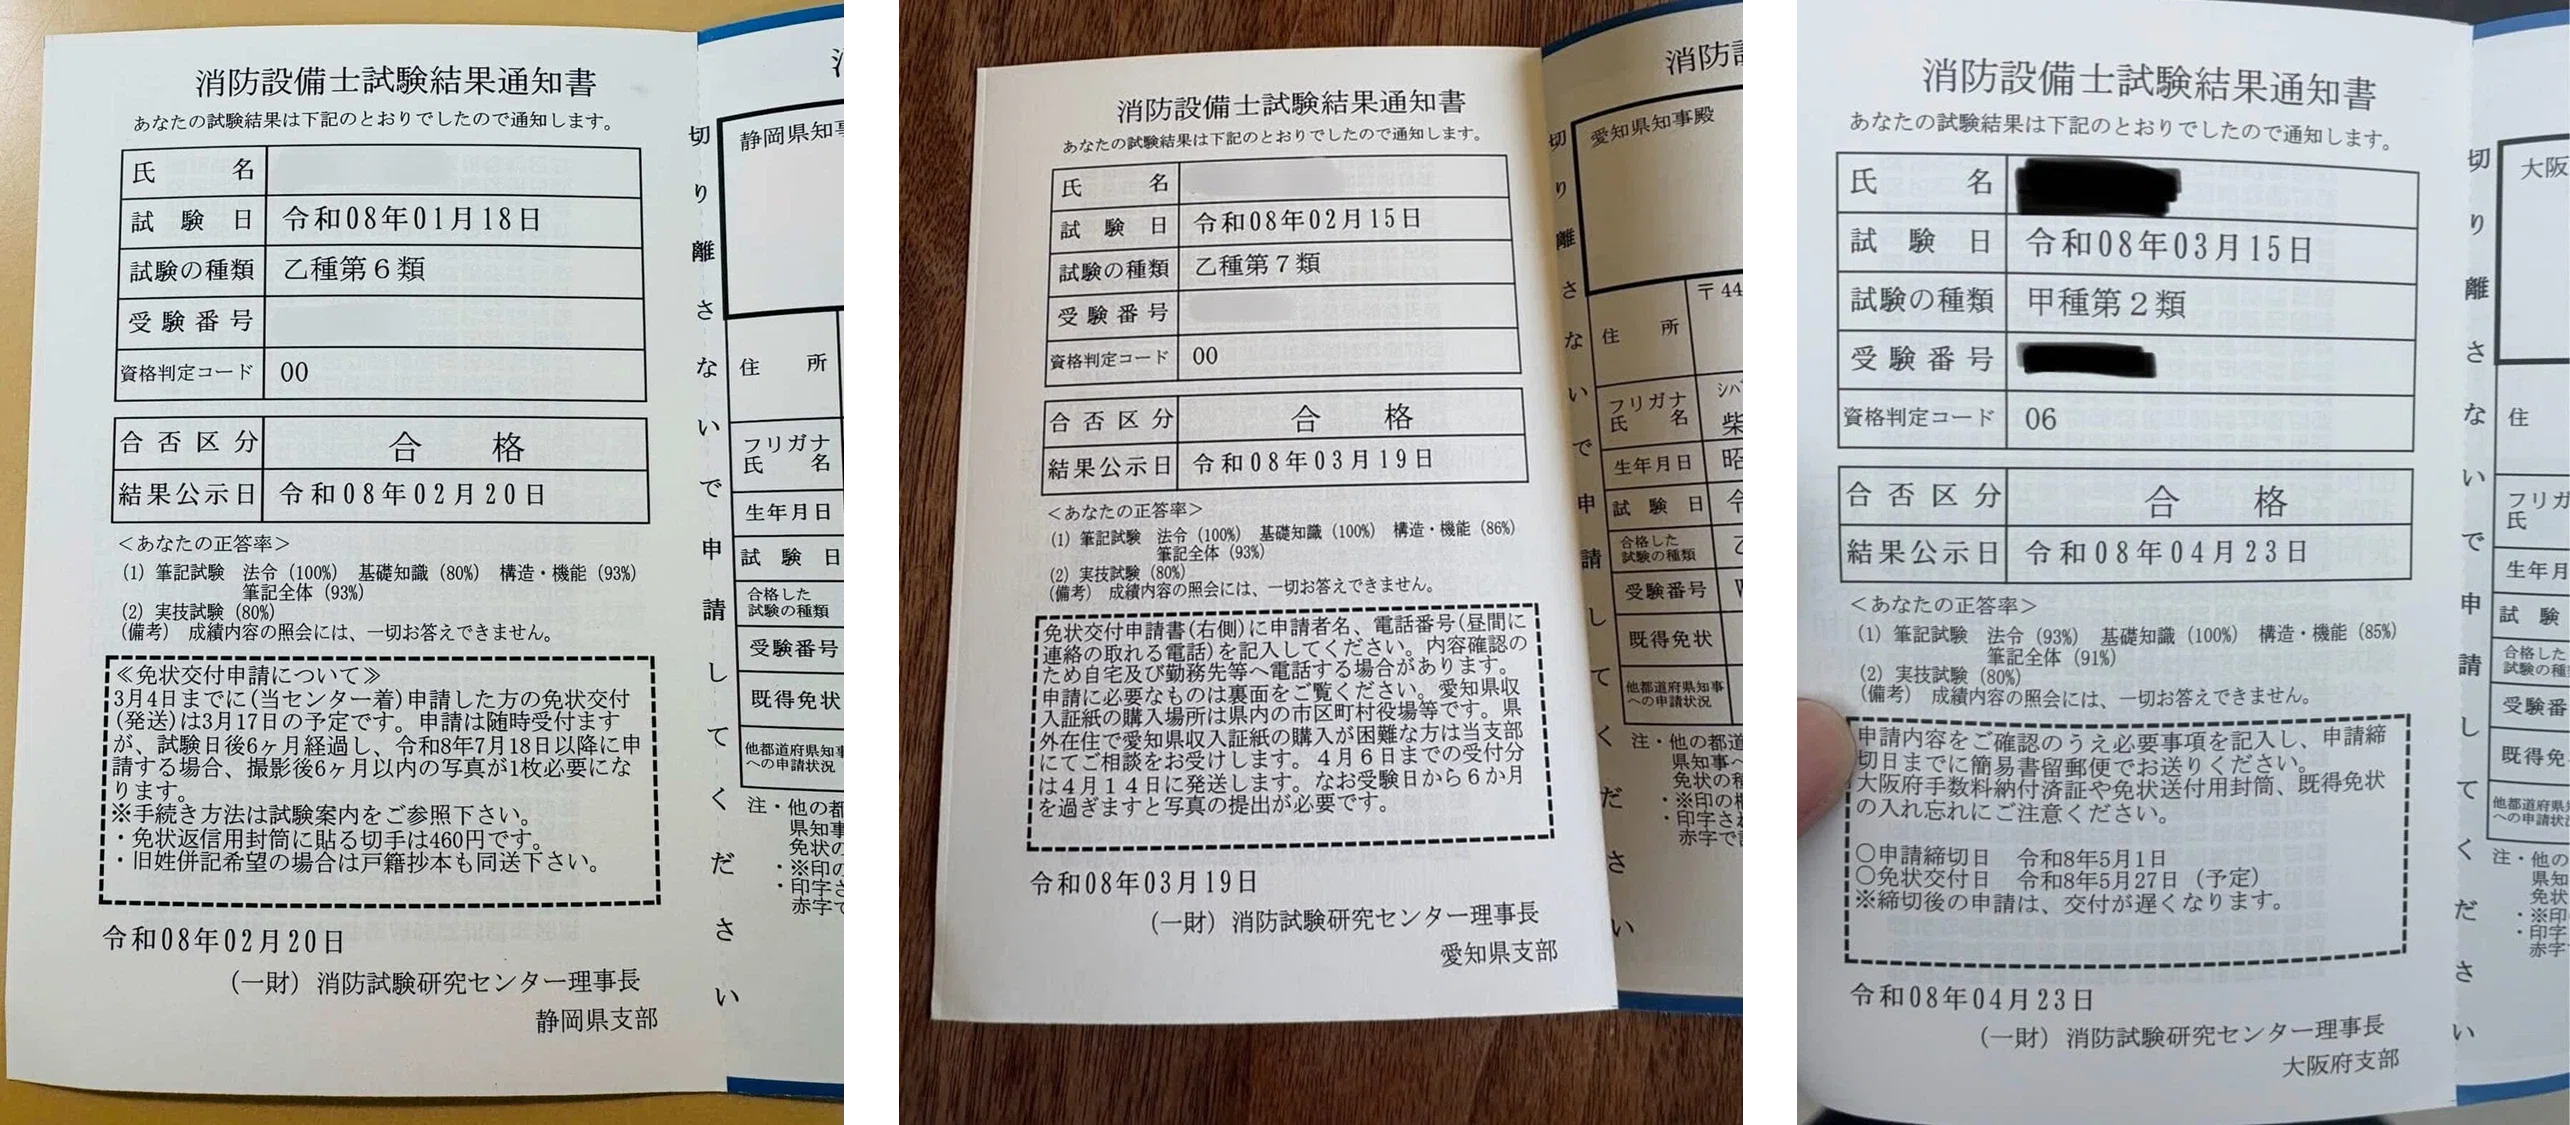 消防設備士試験結果通知書
あなたの試験結果は下記のとおりでしたので通知します。
氏名
試験日 令和08年01月18日
試験の種類 乙種第6類
受験番号
資格判定コード 00
合否区分 合格
結果公示日 令和08年02月20日
＜あなたの正答率＞
(1) 筆記試験 法令 (100%) 基礎知識 (80%) 構造・機能 (93%)
筆記全体 (93%)
(2) 実技試験 (80%)
(備考) 成績内容の照会には、一切お答えできません。
≪免状交付申請について≫
3月4日までに(当センター着)申請した方の免状交付
(発送)は3月17日の予定です。申請は随時受付ます
が、試験日後6ヶ月経過し、令和8年7月18日以降に申
請する場合、撮影後6ヶ月以内の写真が1枚必要にな
ります。
※手続き方法は試験案内をご参照下さい。
・免状返信用封筒に貼る切手は460円です。
・旧姓併記希望の場合は戸籍抄本も同送下さい。
令和08年02月20日
(一財) 消防試験研究センター理事長
静岡県支部
切り離さないで申請してください
静岡県知事
住所
フリガナ
氏名
生年月日
試験日
合格した
試験の種類
受験番号
既得免状
他都道府県知事
への申請状況
注・他の都
県知事
免状の
・※印の
・印字さ
赤字で
消防設備士試験結果通知書
あなたの試験結果は下記のとおりでしたので通知します。
氏名
試験日 令和08年02月15日
試験の種類 乙種第7類
受験番号
資格判定コード 00
合否区分 合格
結果公示日 令和08年03月19日
＜あなたの正答率＞
(1) 筆記試験 法令 (100%) 基礎知識 (100%) 構造・機能 (86%)
筆記全体 (93%)
(2) 実技試験 (80%)
(備考) 成績内容の照会には、一切お答えできません。
免状交付申請書(右側)に申請者名、電話番号(昼間に
連絡の取れる電話)を記入してください。内容確認の
ため自宅及び勤務先等へ電話する場合があります。
申請に必要なものは裏面をご覧ください。愛知県収
入証紙の購入場所は県内の市区町村役場等です。県
外在住で愛知県収入証紙の購入が困難な方は当支部
にてご相談をお受けします。4月6日までの受付分
は4月14日に発送します。なお受験日から6か月
を過ぎますと写真の提出が必要です。
令和08年03月19日
(一財) 消防試験研究センター理事長
愛知県支部
切り離さないで申請してください
消防設
愛知県知事殿
〒44
住所
フリガナ シバ
氏名 柴
生年月日 昭
試験日 令
合格した
試験の種類 乙
受験番号
既得免状
他都道府県知事
への申請状況
注・他の都道
県知事へ
免状の種
・※印の欄
・印字され
赤字で訂
消防設備士試験結果通知書
あなたの試験結果は下記のとおりでしたので通知します。
氏名
試験日 令和08年03月15日
試験の種類 甲種第2類
受験番号
資格判定コード 06
合否区分 合格
結果公示日 令和08年04月23日
＜あなたの正答率＞
(1) 筆記試験 法令 (93%) 基礎知識 (100%) 構造・機能 (85%)
筆記全体 (91%)
(2) 実技試験 (80%)
(備考) 成績内容の照会には、一切お答えできません。
申請内容をご確認のうえ必要事項を記入し、申請締
切日までに簡易書留郵便でお送りください。
大阪府手数料納付済証や免状送付用封筒、既得免状
の入れ忘れにご注意ください。
○申請締切日 令和8年5月1日
○免状交付日 令和8年5月27日 (予定)
※締切後の申請は、交付が遅くなります。
令和08年04月23日
(一財) 消防試験研究センター理事長
大阪府支部
切り離さないで申請してください
大阪
住
フリガ
氏
生年月
試験
合格した
試験の種
受験番
既得免
他都道府県
への申請状
注・他の
県知
免状
・※印
・印字
赤字